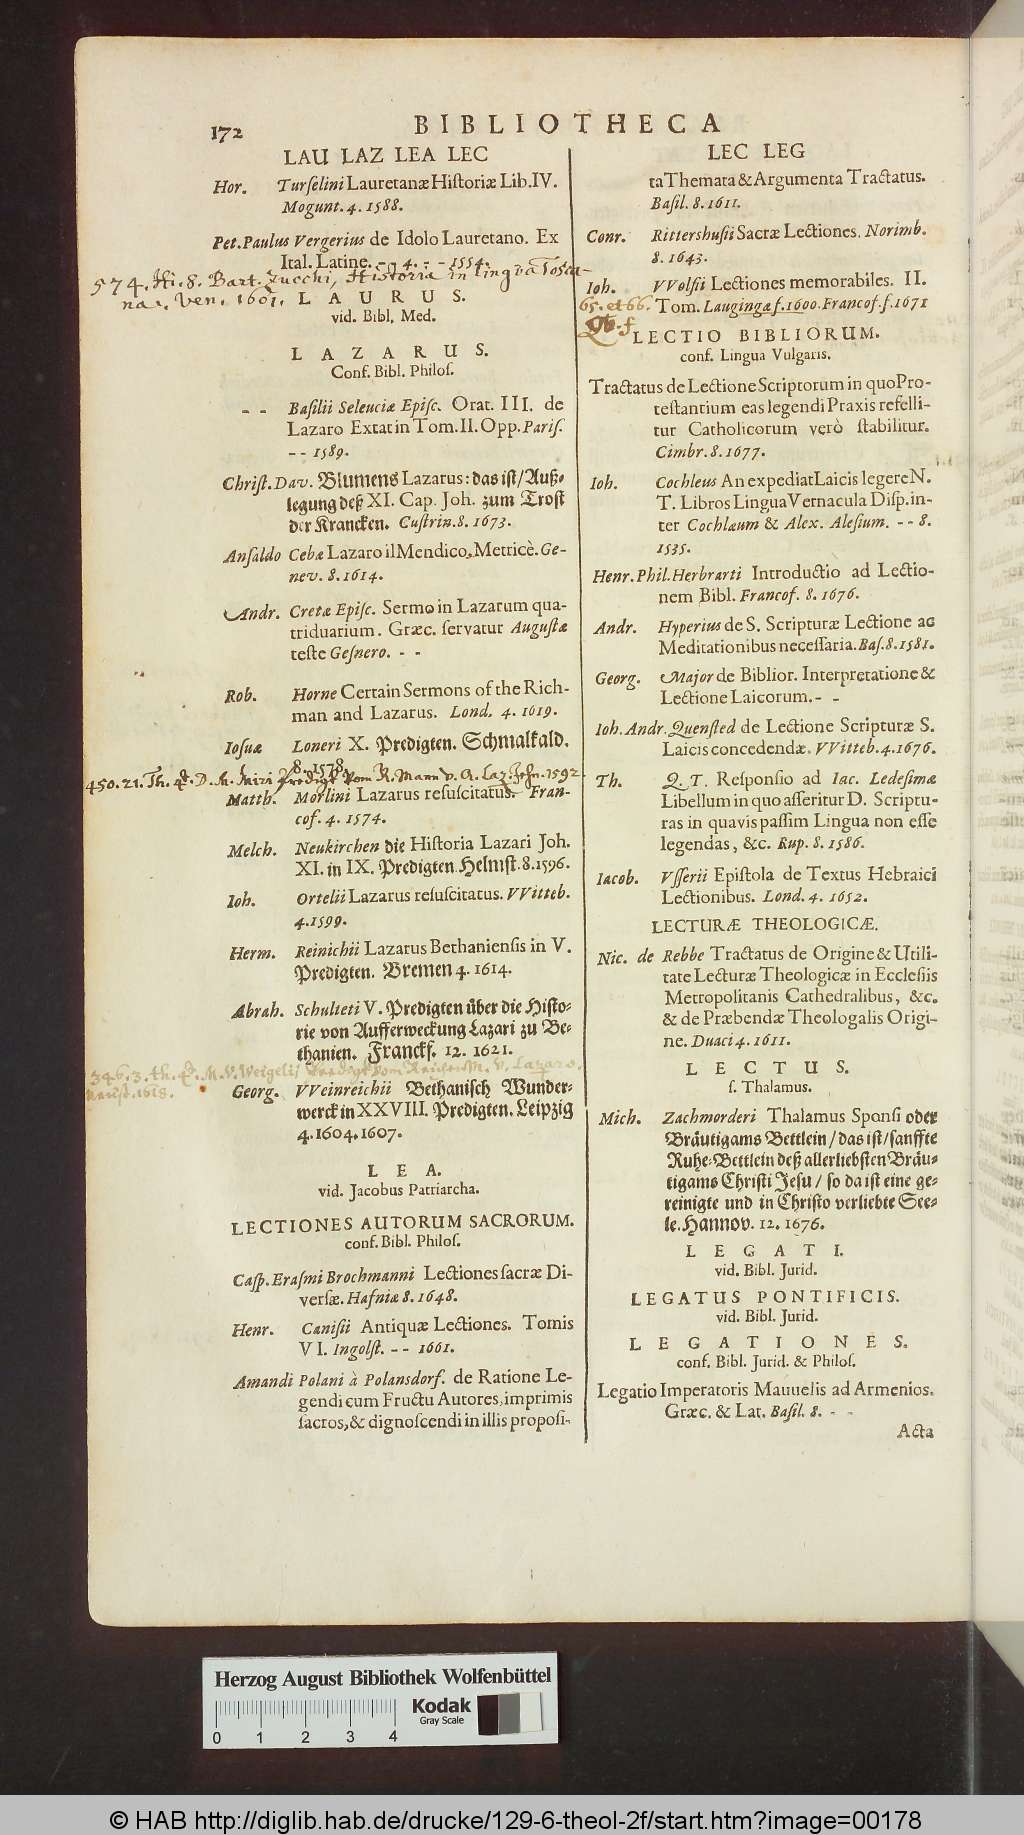 172
BIBLIOTHECA
LAU LAZ LEA LEC
Hor. Turselini Lauretanæ Historiæ Lib. IV.
Mogunt. 4. 1588.
Pet. Paulus Vergerius de Idolo Lauretano. Ex
Ital. Latine. - - 4. - - 1554.
574. Hi. 8. Bart. Zucchi, Historia in lingva Tosca-
na. Ven. 1601.
LAURUS.
vid. Bibl. Med.
LAZARUS.
Conf. Bibl. Philos.
- - Basilii Seleuciæ Episc. Orat. III. de
Lazaro Extat in Tom. II. Opp. Paris.
- - 1589.
Christ. Dav. Blumens Lazarus: das ist/Auß-
legung deß XI. Cap. Joh. zum Trost
der Krancken. Custrin. 8. 1673.
Ansaldo Cebæ Lazaro il Mendico, Metricè. Ge-
nev. 8. 1614.
Andr. Cretæ Episc. Sermo in Lazarum qua-
triduarium. Græc. servatur Augustæ
teste Gesnero. - -
Rob. Horne Certain Sermons of the Rich-
man and Lazarus. Lond. 4. 1619.
Iosuæ Loneri X. Predigten. Schmalkald.
8. 1578.
450. 21. Th. 4. D. M. Miri Predigt vom R. Mann v. A. Laz. 1592
Matth. Morlini Lazarus resuscitatus. Fran-
cof. 4. 1574.
Melch. Neukirchen die Historia Lazari Joh.
XI. in IX. Predigten. Helmst. 8. 1596.
Ioh. Ortelii Lazarus resuscitatus. VVitteb.
4. 1599.
Herm. Reinichii Lazarus Bethaniensis in V.
Predigten. Bremen 4. 1614.
Abrah. Schulteti V. Predigten über die Histo-
rie von Aufferweckung Lazari zu Be-
thanien. Franckf. 12. 1621.
346. 3. th. 4. M. V. Weigelij Predigt vom Reichen M. v. Lazaro.
Neust. 1618.
Georg. VVeinreichii Bethanisch Wunder-
werck in XXVIII. Predigten. Leipzig
4. 1604. 1607.
LEA.
vid. Jacobus Patriarcha.
LECTIONES AUTORUM SACRORUM.
conf. Bibl. Philos.
Casp. Erasmi Brochmanni Lectiones sacræ Di-
versæ. Hafniæ 8. 1648.
Henr. Canisii Antiquæ Lectiones. Tomis
VI. Ingolst. - - 1661.
Amandi Polani à Polansdorf. de Ratione Le-
gendi cum Fructu Autores, imprimis
sacros, & dignoscendi in illis proposi-
LEC LEG
ta Themata & Argumenta Tractatus.
Basil. 8. 1611.
Conr. Rittershusii Sacræ Lectiones. Norimb.
8. 1643.
Ioh. VVolfii Lectiones memorabiles. II.
65. et 66. Tom. Laugingæ f. 1600. Francof. f. 1671
Qb. f
LECTIO BIBLIORUM.
conf. Lingua Vulgaris.
Tractatus de Lectione Scriptorum in quo Pro-
testantium eas legendi Praxis refelli-
tur Catholicorum verò stabilitur.
Cimbr. 8. 1677.
Ioh. Cochleus An expediat Laicis legere N.
T. Libros Lingua Vernacula Disp. in-
ter Cochlæum & Alex. Alesium. - - 8.
1535.
Henr. Phil. Herbrarti Introductio ad Lectio-
nem Bibl. Francof. 8. 1676.
Andr. Hyperius de S. Scripturæ Lectione ac
Meditationibus necessaria. Bas. 8. 1581.
Georg. Major de Biblior. Interpretatione &
Lectione Laicorum. - -
Ioh. Andr. Quensted de Lectione Scripturæ S.
Laicis concedendæ. VVitteb. 4. 1676.
Th. Q. T. Responsio ad Iac. Ledesimæ
Libellum in quo asseritur D. Scriptu-
ras in quavis passim Lingua non esse
legendas, &c. Rup. 8. 1586.
Iacob. Vsserii Epistola de Textus Hebraici
Lectionibus. Lond. 4. 1652.
LECTURÆ THEOLOGICÆ.
Nic. de Rebbe Tractatus de Origine & Utili-
tate Lecturæ Theologicæ in Ecclesiis
Metropolitanis Cathedralibus, &c.
& de Præbendæ Theologalis Origi-
ne. Duaci 4. 1611.
LECTUS.
s. Thalamus.
Mich. Zachmorderi Thalamus Sponsi oder
Bräutigams Bettlein/das ist/sanffte
Ruhe-Bettlein deß allerliebsten Bräu-
tigams Christi Jesu/so da ist eine ge-
reinigte und in Christo verliebte See-
le. Hannov. 12. 1676.
LEGATI.
vid. Bibl. Jurid.
LEGATUS PONTIFICIS.
vid. Bibl. Jurid.
LEGATIONES.
conf. Bibl. Jurid. & Philos.
Legatio Imperatoris Mauuelis ad Armenios.
Græc. & Lat. Basil. 8. - -
Acta
Herzog August Bibliothek Wolfenbüttel
0 1 2 3 4
Kodak
Gray Scale
© HAB http://diglib.hab.de/drucke/129-6-theol-2f/start.htm?image=00178